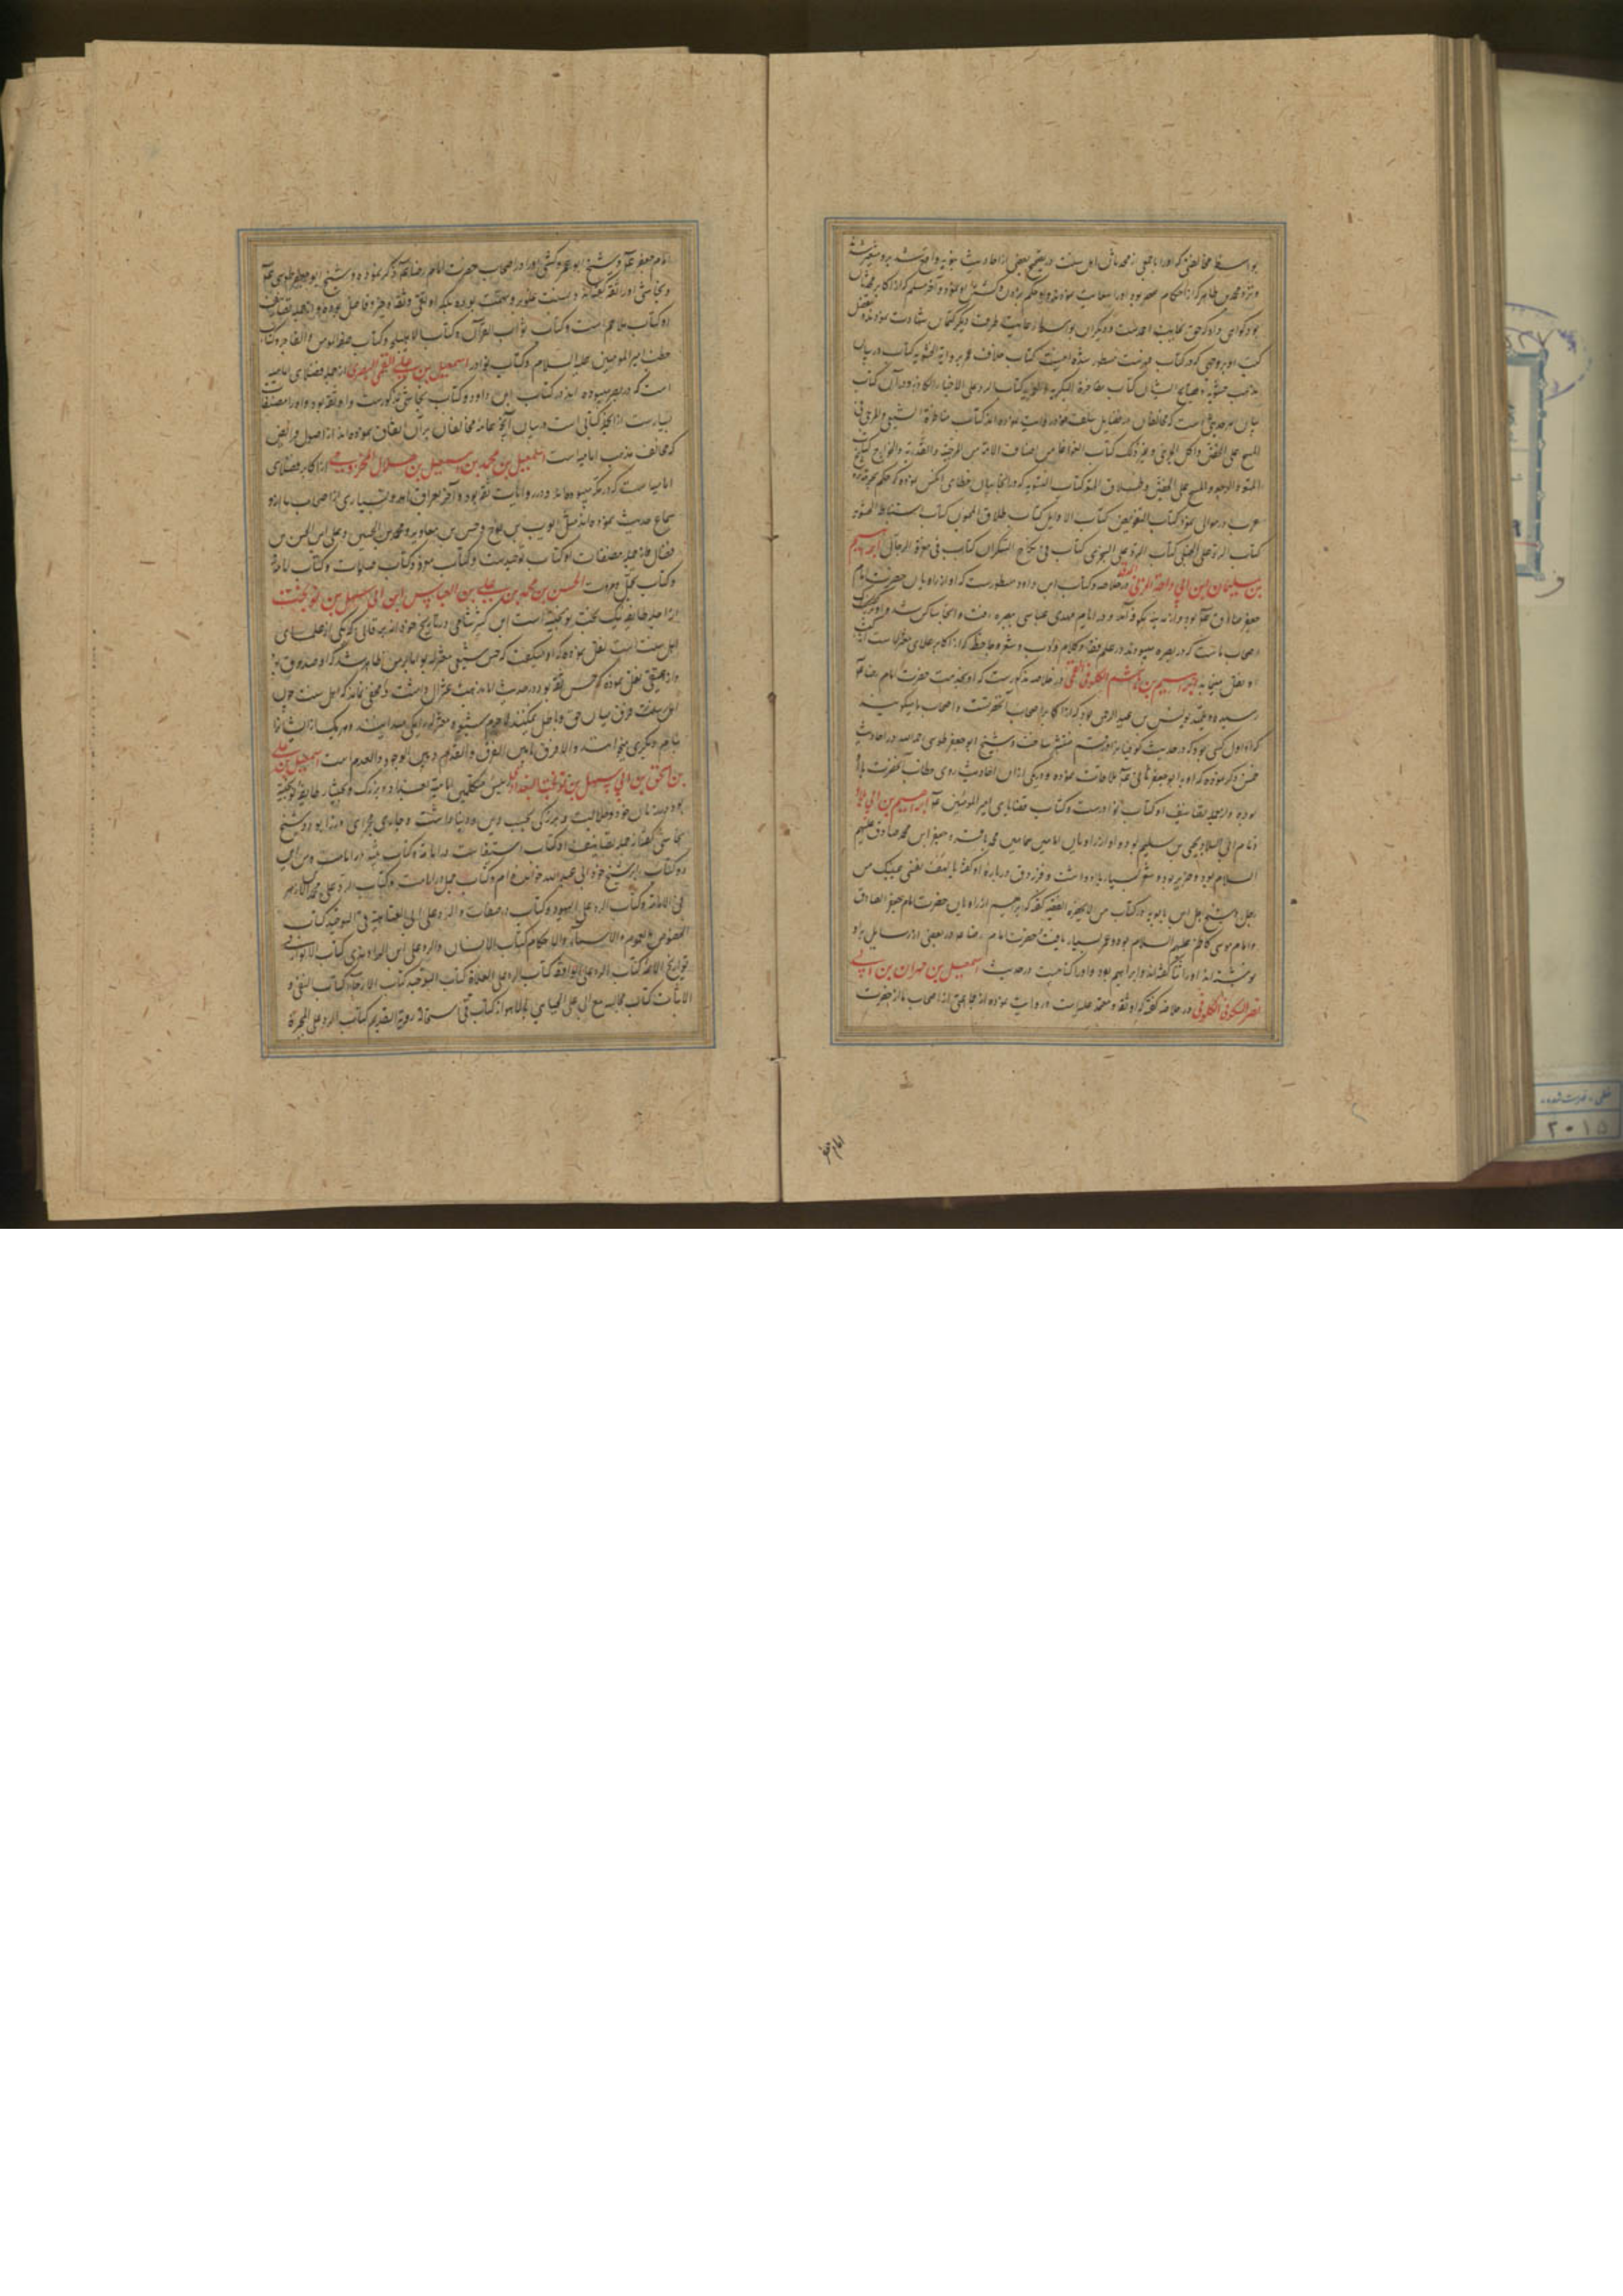 بواسطه مخالفتی که او را با جمعی از محدثان اهل سنت در تصحیح بعضی از احادیث
و نزد محمد بن طاهر که از حکام مصر بود او را
بود گواهی داد که حق بجانب احمدست و دیگران بواسطه رعایت طرف دیگر کتمان شهادت نمودند
کتب او بروجهی که در کتاب فهرست مسطور شده اینست کتاب خلاف عمر بروایة الحشویه کتاب در بیان
مذهب حشویه و فضایح ایشان کتاب مفاخرة البکریه و العمریه کتاب الرد علی الاخبار الکاذبه و در آن کتاب
بیان هر حدیثی است که مخالفان در فضایل سلف خود روایت نموده‌اند کتاب مناظرة الشیعی و المرجی فی
المسح علی الخفین و اکل الجری و غیر ذلک کتاب الغوغا من اصناف الامة من المرجئة و القدریة و الخوارج کتاب
المتعه و الرجعه و المسح علی الخفین و طلاق المتعه کتاب التسویه که در آنجا بیان خطای آنکس نموده که حکم بحرمت تزویج
عرب در موالی نموده کتاب التفویض کتاب الاوایل کتاب طلاق المجنون کتاب استنباط الحشویه
کتاب الرد علی الحنبلی کتاب الرد علی السجزی کتاب فی نکاح السکران کتاب
بن سلیمان بن ابی داحة المزنی در خلاصه و کتاب ابن داود مسطورست که او از راویان حضرت امام
جعفر صادق علیه بود و از مدینه بکوفه آمد و در ایام مهدی عباسی ببصره رفت و آنجا ساکن شد
اصحاب ماست که در بصره میبودند در علم فقه و کلام و ادب و شعر و جاحظ که از اکابر علمای معتزله است
از او نقل مینماید ابراهیم بن هاشم الکوفی القمی در خلاصه مذکورست که او بخدمت حضرت امام رضا علیه
رسیده و تلمیذ یونس بن عبدالرحمن بود که از اکابر اصحاب آنحضرتست و اصحاب ما میگویند
که او اول کسی بود که در حدیث کوفیان را در قم منتشر ساخت و شیخ ابوجعفر طوسی رحمه الله در احادیث
خمس ذکر نموده که او با ابوجعفر ثانی علیه ملاقات نموده بود و یکی از آن احادیث روی خطاب آنحضرت با او
بوده و از جمله تصانیف او کتاب نوادرست و کتاب قضایای امیرالمؤمنین علیه ابراهیم بن ابی البلاد
و نام ابی البلاد یحیی بن سلیم بود و او از راویان امامین همامین محمد باقر و جعفر ابن محمد صادق علیهم
السلام بود و ضریر بود و شعر بسیار یاد داشت و فرزدق درباره او گفته یا لهف نفسی عینیک من
رجل و شیخ اجل ابن بابویه در کتاب من لایحضره الفقیه گفته که ابراهیم از راویان حضرت امام جعفر الصادق
و امام موسی کاظم علیهم السلام بود و عمر بسیار یافت و حضرت امام رضا در بعضی از رسایل که باو
نوشته‌اند او را ثنا گفته‌اند و ابراهیم بود و او را کتابیست در حدیث اسمعیل بن مهران بن ابی
نصر السکونی الکوفی در خلاصه گفته که او ثقه و معتمد علیه است و روایت نموده از جماعتی از اصحاب ما از حضرت
امام جعفر
امام جعفر علیه و شیخ ابو عمرو کشی او را در اصحاب حضرت امام رضا علیه ذکر نموده و شیخ ابوجعفر طوسی
و نجاشی او را ثقه گفته‌اند و
او کتاب ملاحم است و کتاب ثواب القرآن و کتاب الاهلیلجه و کتاب صفة المؤمن و الفاجر و کتاب
خطب امیرالمؤمنین علیه السلام و کتاب نوادر اسمعیل بن علی القمی البصری از جمله فضلای امامیه
است که در بصره میبوده‌اند در کتاب ابن داود و کتاب نجاشی مذکورست و او ثقه بود و او را مصنفات
بسیارست از آنجمله کتابی است در بیان آنچه عامه مخالفان بر آن اتفاق نموده‌اند از اصول فرایض
که مخالف مذهب امامیه است اسمعیل بن محمد بن اسمعیل بن هلال المخزومی از اکابر فضلای
امامیه است که در مکه میبوده‌اند و در روایات ثقه بوده و آخر بعراق آمد و بسیاری از اصحاب ما از او
سماع حدیث نموده‌اند مثل ایوب بن نوح و حسن بن معاویه و محمد بن الحسین و علی ابن الحسن بن
فضال و از جمله مصنفات او کتاب توحیدست و کتاب معرفة و کتاب صلوات و کتاب امامة
و کتاب تجمل و مروت الحسن بن محمد بن علی بن العباس ابن ابی سهل بن نوبخت
از اجله طایفه نیک بخت نوبختیه است ابن کثیر شامی در تاریخ خود از برقانی که یکی از علمای
اهل سنت است نقل نموده که او میگفت که حسن شیعی معتزلی بود اما بر من ظاهر شد که او صدوق بود
و از عتیقی نقل نموده که حسن ثقه بود در حدیث اما مذهب اعتزال داشت و مخفی نماند که اهل سنت چون
اهل سنت فرق میان حق و باطل نمیکنند لاجرم شیعه و معتزله را یکی میدانند و هر یک از ایشان را
بنام دیگری میخوانند و الا فرق مابین الفرق و القدم و بین الوجود و العدم است اسمعیل بن علی
بن اسحق بن ابی سهل بن نوبخت البغدادی رئیس متکلمین امامیه بغداد و بزرگ و پیشوای طایفه نوبختیه
بود در زمان خود و جلالت و بزرگی بحسب دین و دنیا داشت و جاری مجرای وزرا بود و شیخ
نجاشی گفته از جمله تصانیف او کتاب استیفا است در امامة و کتاب تنبیه در امامت و من این
دو کتاب را بر شیخ خود ابی عبدالله خوانده‌ام و کتاب جمل در امامت و کتاب الرد علی محمد بن الازهر
فی الامامة و کتاب الرد علی الیهود و کتاب در صفات و الرد علی ابی العتاهیه فی التوحید کتاب
الخصوص و العموم و الاسماء و الاحکام کتاب الانسان و الرد علی ابن الراوندی کتاب الانوار فی
تواریخ الائمة کتاب الرد علی الواقفة کتاب الرد علی الغلاة کتاب التوحید کتاب الارجاء کتاب النفی و
الاثبات کتاب مجالسه مع ابی علی الجبایی بالاهواز کتاب فی استحالة رویة القدیم کتاب الرد علی المجبرة
۲۰۱۵